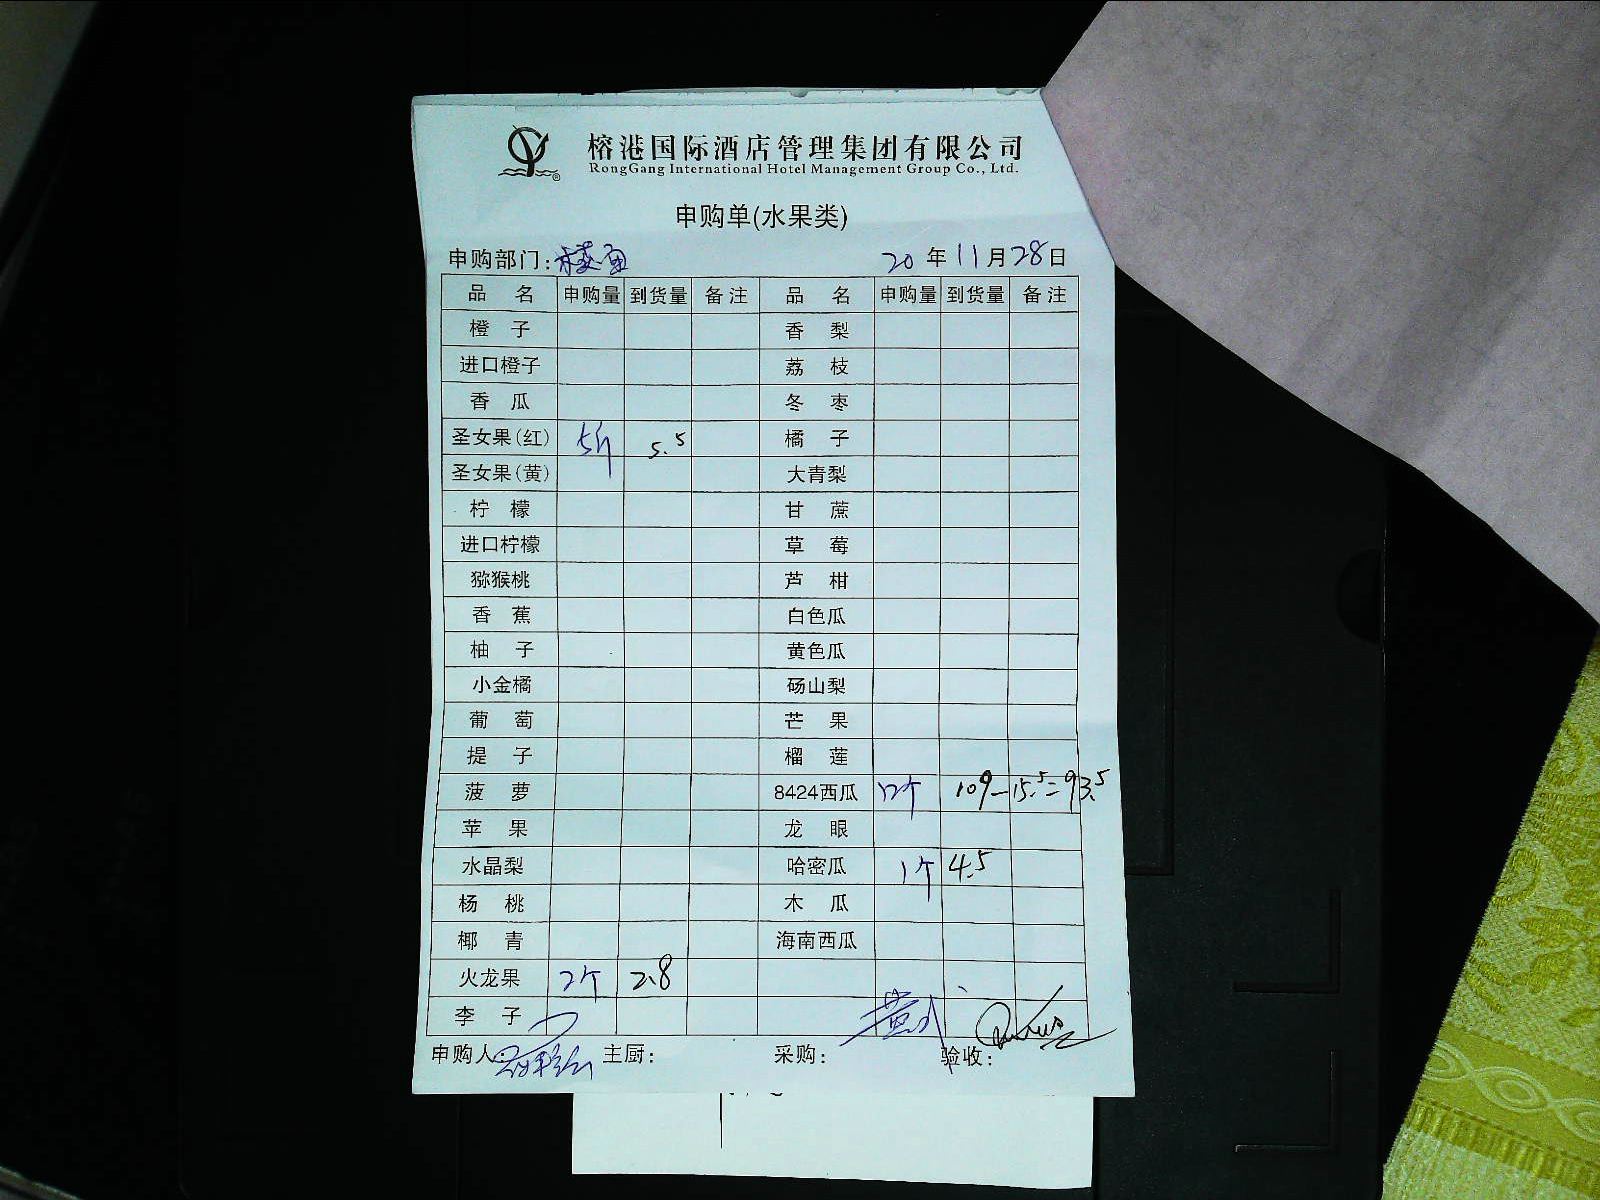 榕港国际酒店管理集团有限公司
RongGang International Hotel Management Group Co., Ltd.
申购单(水果类)
申购部门: 20年11月28日
品名 申购量 到货量 备注 品名 申购量 到货量 备注
橙子 香梨
进口橙子 荔枝
香瓜 冬枣
圣女果(红) 5斤 5.5 橘子
圣女果(黄) 大青梨
柠檬 甘蔗
进口柠檬 草莓
猕猴桃 芦柑
香蕉 白色瓜
柚子 黄色瓜
小金橘 砀山梨
葡萄 芒果
提子 榴莲
菠萝 8424西瓜 12个 109-15.5=93.5
苹果 龙眼
水晶梨 哈密瓜 1个 4.5
杨桃 木瓜
椰青 海南西瓜
火龙果 2个 2.8
李子
申购人: 主厨: 采购: 验收: